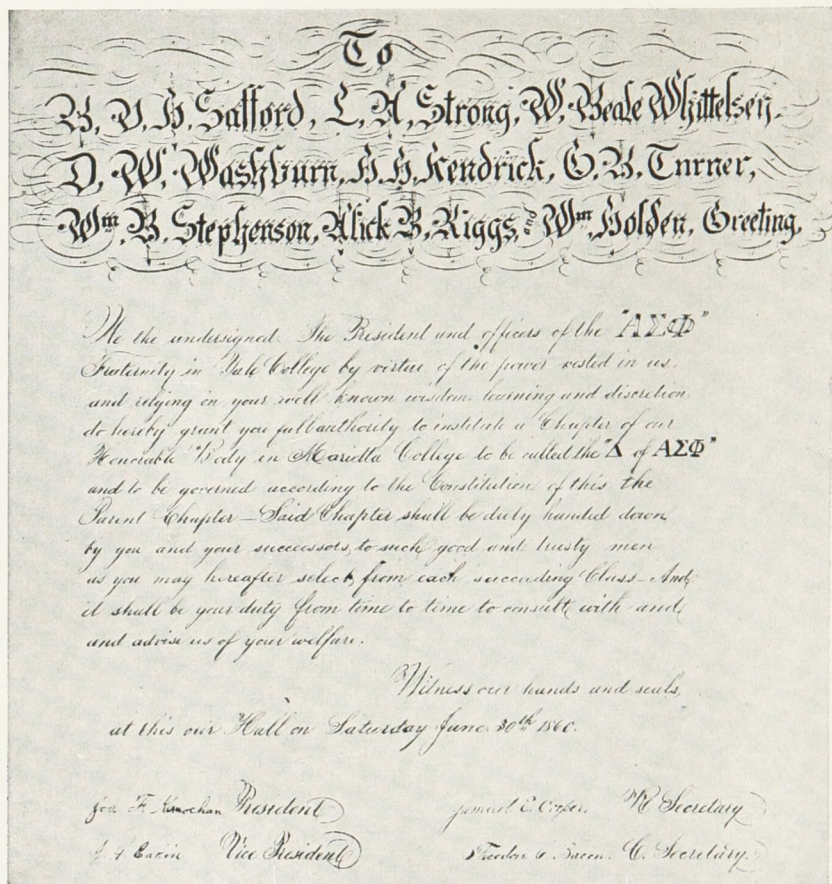 To
B. D. H. Safford, L. A. Strong, W. Beale Whittelsey.
D. W. Washburn, H. H. Kendrick, G. B. Turner,
Wm. B. Stephenson, Alick B. Riggs, and Wm. Holden, Greeting.
We the undersigned. The President and officers of the "ΑΣΦ"
Fraternity in Yale College by virtue of the power vested in us,
and relying on your well known wisdom learning and discretion,
do hereby grant you full authority to institute a Chapter of our
Honorable Body in Marietta College to be called the "Δ of ΑΣΦ"
and to be governed according to the Constitution of this the
Parent Chapter – Said Chapter shall be duly handed down
by you and your successors, to such good and trusty men
as you may hereafter select, from each succeeding Class – And
it shall be your duty from time to time to consult with and
and advise us of your welfare.
Witness our hands and seals,
at this our Hall on Saturday June 30th 1860.
F. Kernochan President
Cooper. R Secretary
Vice President
Bacon. C. Secretary.